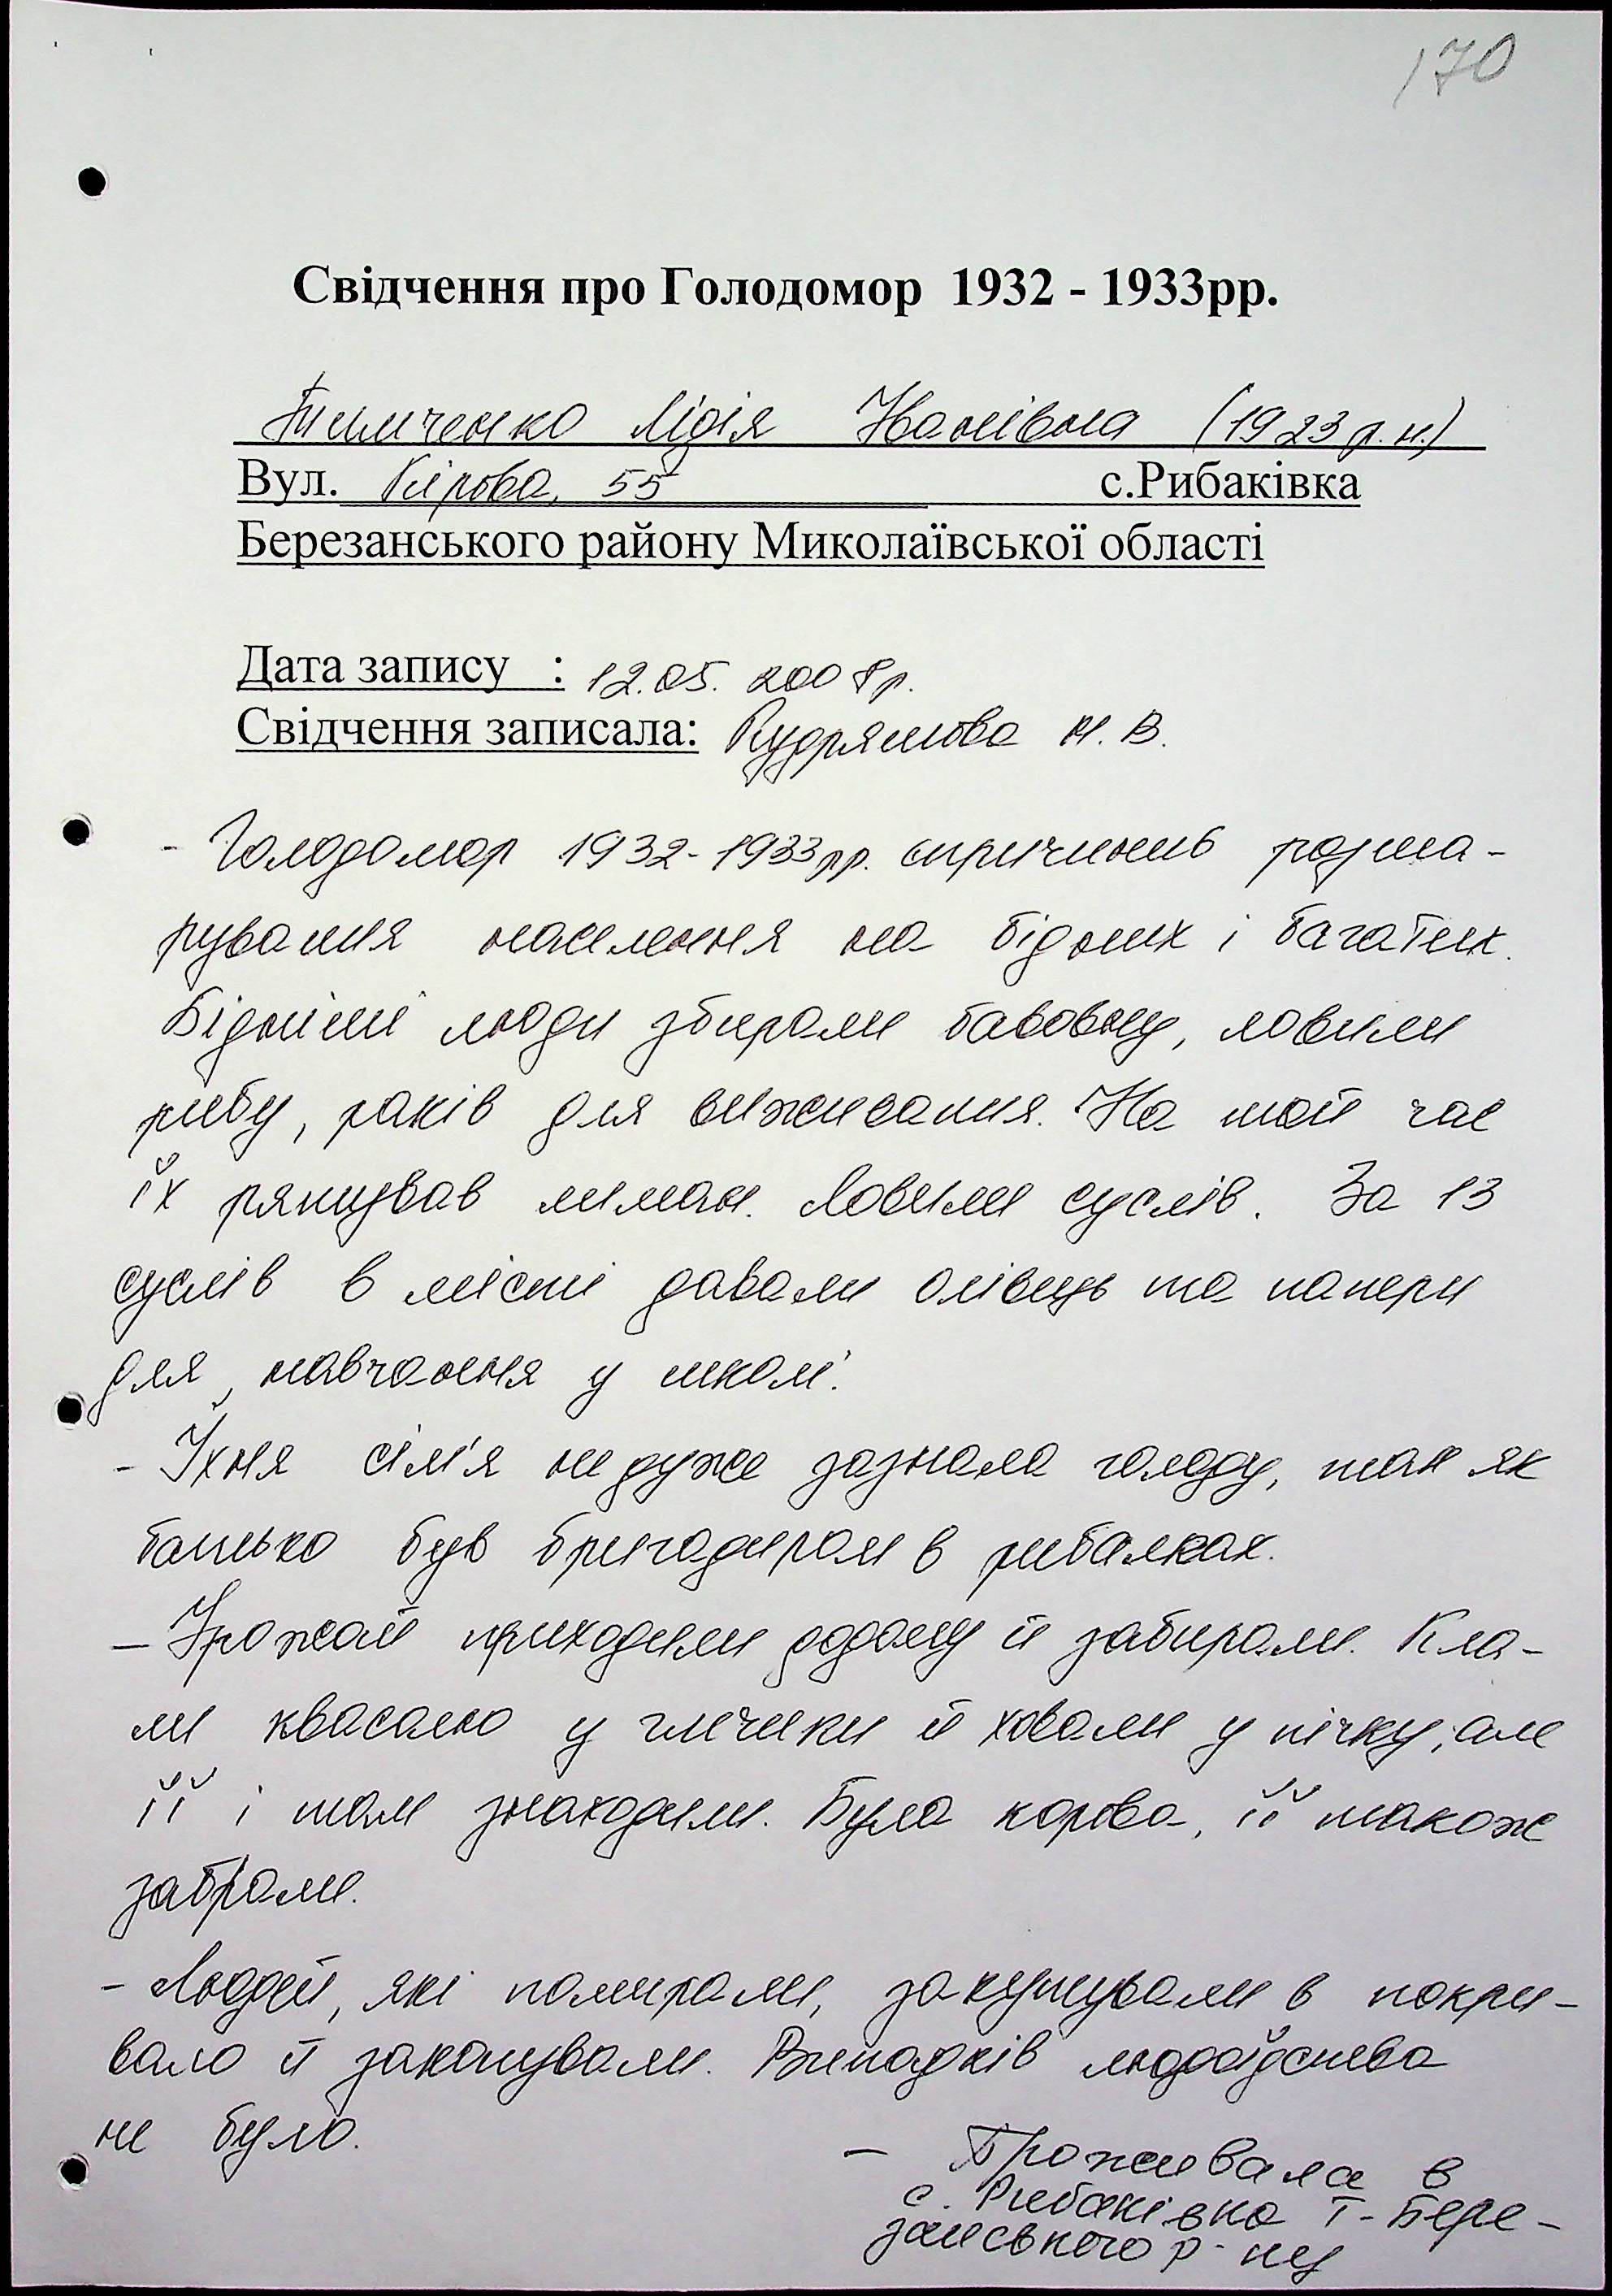 170
Свідчення про Голодомор 1932 - 1933рр.
Тимченко Лідія Іванівна (1923 р.н.)
Вул. Кірова, 55 с.Рибаківка
Березанського району Миколаївської області
Дата запису : 12.05. 2008р.
Свідчення записала: Кудряшова Н. В.
- Голодомор 1932-1933 рр. спричинив розша-
рування населення на бідних і багатих.
Бідніші люди збирали бавовну, ловили
рибу, раків для виживання. На той час
їх рятував лиман. Ловили суслів. За 13
суслів в місті давали олівець та папери
для навчання у школі.
- Їхня сім'я не дуже зазнала голоду, так як
батько був бригадиром в рибалках.
- Урожай приходили додому й забирали. Кла-
ли квасолю у глечики й ховали у пічку, але
її і там знаходили. Була корова, її також
забрали.
- Людей, які помирали, закутували в покри-
вало й закопували. Випадків людоїдства
не було.
- Проживала в
с. Рибаківка Т-Бере-
занського р-ну